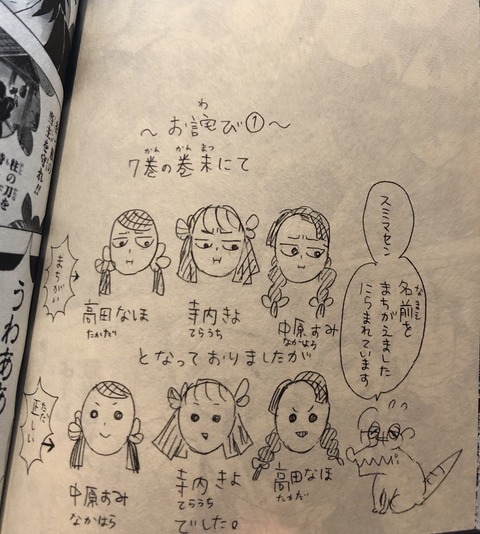 ～お詫び①～
わ
7巻の巻末にて
かん かん まつ
まちがい→
高田なほ
たかだ
寺内きよ
てらうち
中原すみ
なかはら
となっておりましたが
ただ
正しい→
中原すみ
なかはら
寺内きよ
てらうち
高田なほ
たかだ
でした。
スミマセン
名前を
なまえ
まちがえました
にらまれています
柱の刀を
うわああ